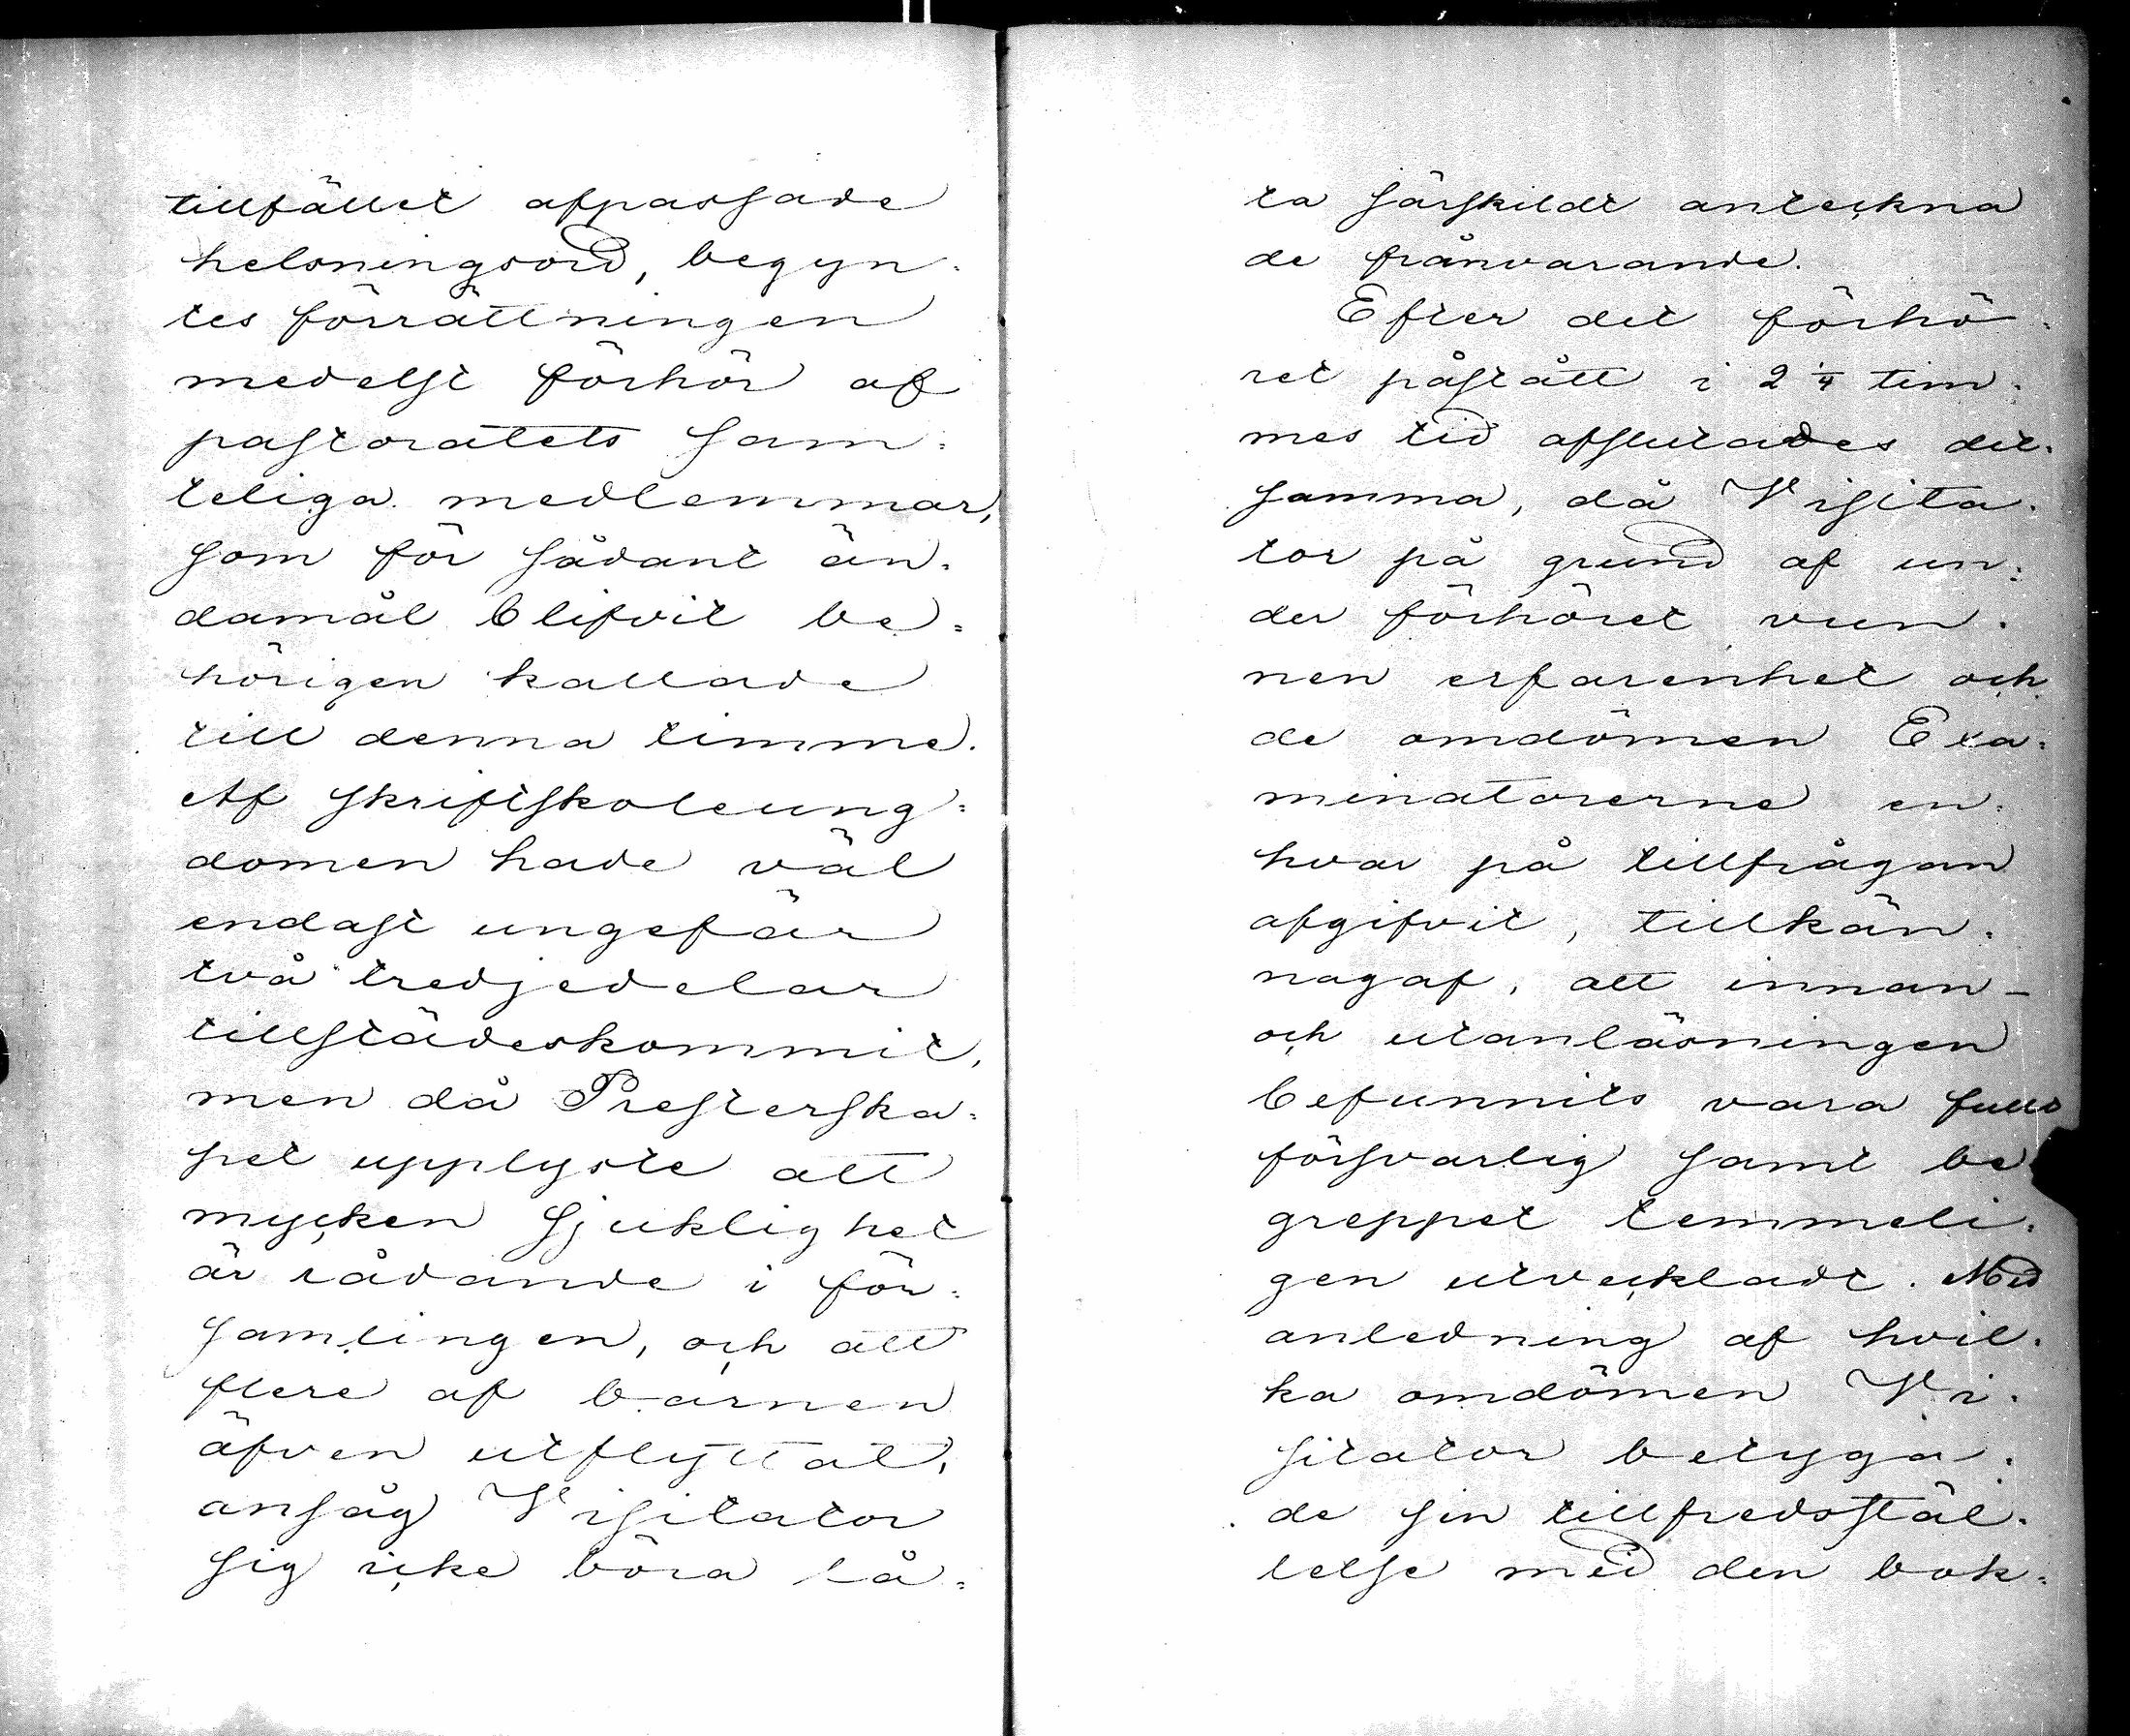 tillfället afpassade
helsningsord, begyn-
tes förrättningen
medelst förhör af
pastoratets sam-
teliga medlemmar,
som för sådant än-
damål blifvit be-
hörigen kallade
till denna timme.
Af skriftskoleung-
domen hade väl
endast ungefär
två tredjedelar
tillstädeskommit,
men då Presterska-
pet upplyste att
mycken sjuklighet
är rådande i för-
samlingen, och att
flere af barnen
äfven utflyttat,
ansåg Visitator
sig icke böra lå-
ta särskildt anteckna
de frånvarande.
Efter det förhö-
ret påstått i 2 1/4 tim-
mes tid afslutades det-
samma, då Visita-
tor på grund af un-
der förhöret vun-
nen erfarenhet och
de omdömen Exa-
minatorerne en-
hvar på tillfrågan
afgifvit, tillkän-
nagaf, att innan-
och utanläsningen
befunnits vara fullt
försvarlig samt be-
greppet temmeli-
gen utveckladt. Med
anledning af hvil-
ka omdömen Vi-
sitator betyga-
de sin tillfredsstäl-
lelse med den bok-